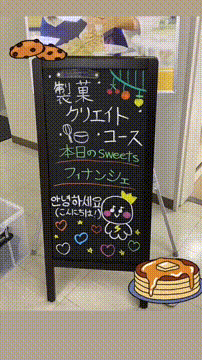 製菓
クリエイト
・コース
本日のsweets
フィナンシェ
안녕하세요
(こんにちは!)